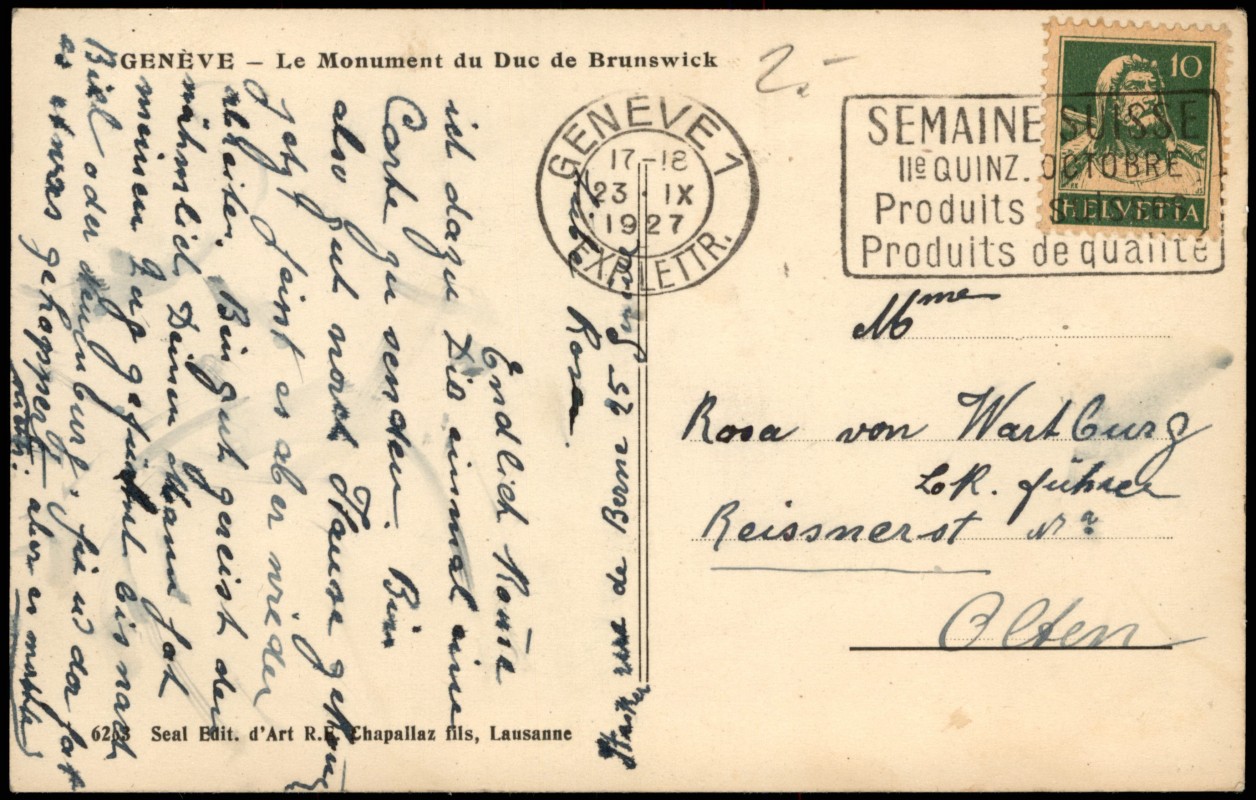 GENÈVE – Le Monument du Duc de Brunswick
2.-
GENÈVE 1
17-18
23. IX
1927
EXP. LETTR.
SEMAINE SUISSE
IIe QUINZ. OCTOBRE
Produits suisses
Produits de qualité
10
HELVETIA
Mme
Rosa von Wartburg
Lok. führer
Reissnerst
Olten
Endlich
ich dazu Dir einmal eine
Carte zu senden. Bin
also gut nach Hause
jetzt es aber wieder
arbeiten. Bin gut gereist
nähmlich Deinen Mann hat
meinen bis nach
Biel oder Neuenburg,
as etwas aber es
Rosa.
rue de Berne 25
6253 Seal Edit. d'Art R.E. Chapallaz fils, Lausanne